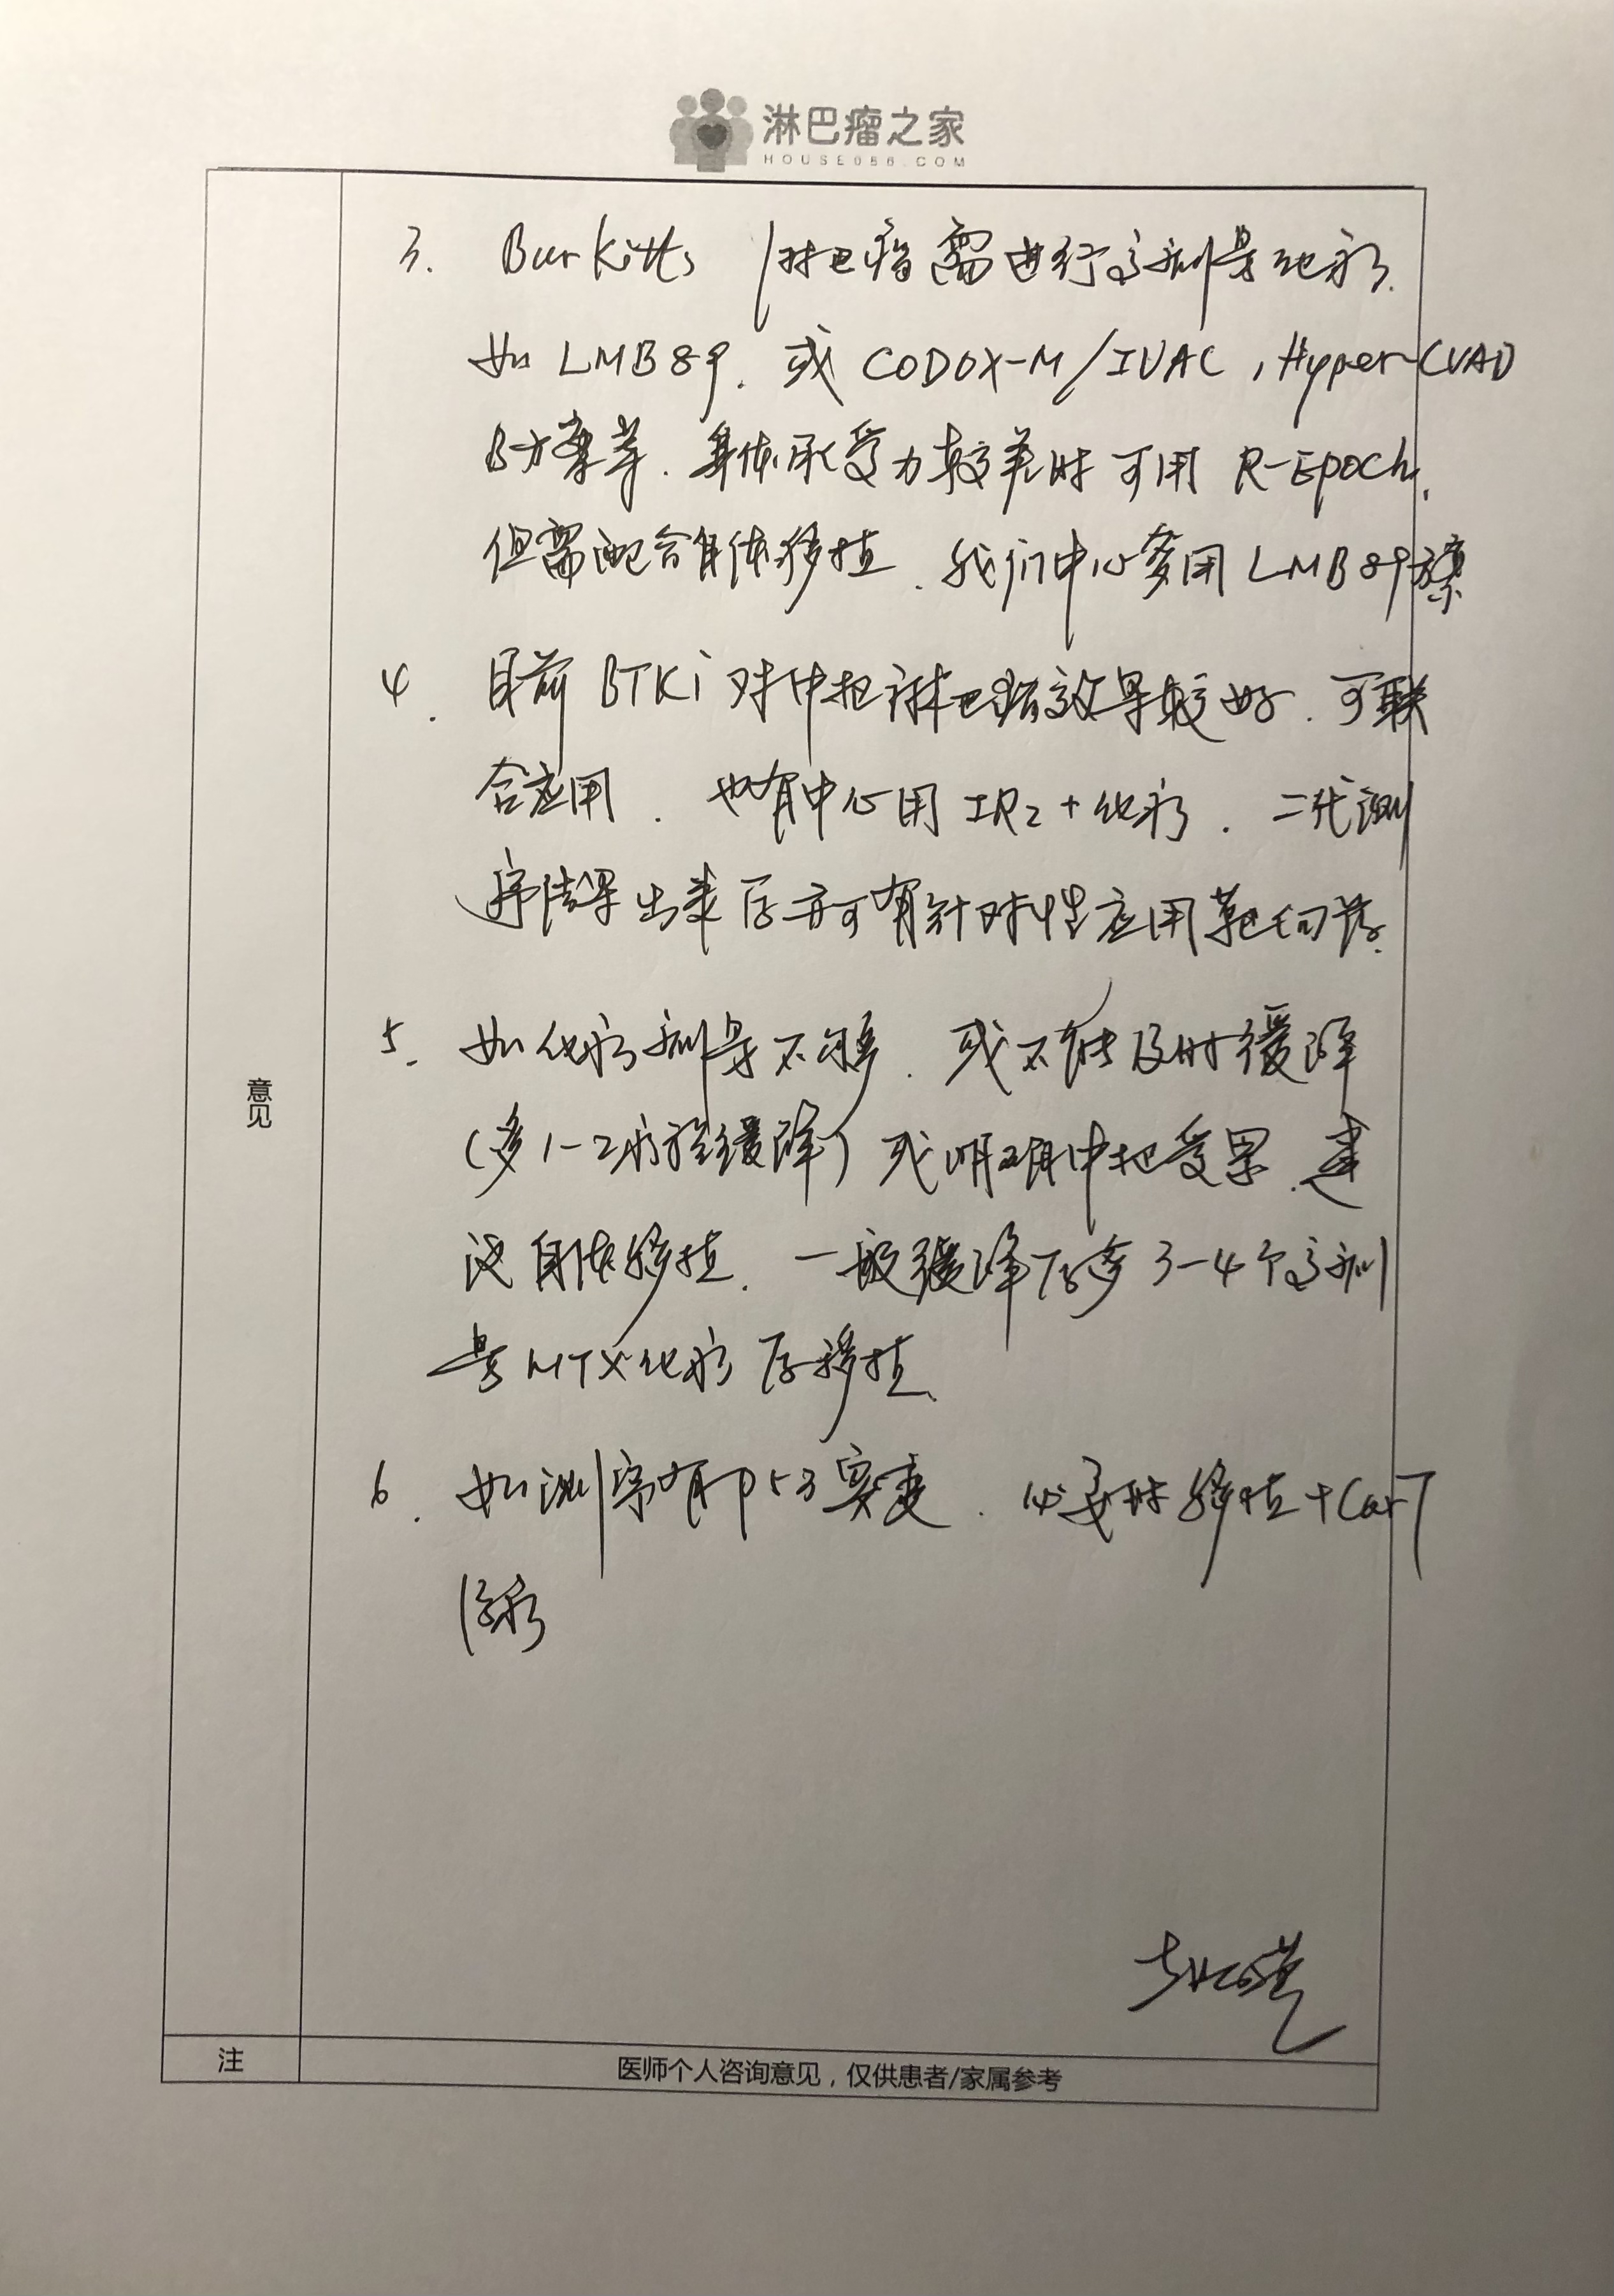 淋巴瘤之家
HOUSE086.COM
3. Burkitts 淋巴瘤需进行高剂量化疗.
如 LMB89. 或 CODOX-M/IVAC, Hyper-CVAD
方案等. 身体承受力较差时可用 R-Epoch,
但需配合自体移植. 我们中心多用 LMB89方案
4. 目前 BTKi 对中枢淋巴瘤效果较好. 可联
合应用. 也有中心用 IR2+化疗. 二代测
序结果出来后亦可有针对性应用靶向药.
5. 如化疗剂量不够. 或不能及时缓解
(多1-2疗程缓解) 或明确中枢受累. 建
议自体移植. 一般缓解后多 3-4个高剂
量 MTX化疗后移植.
6. 如测序有P53突变. 必要时移植+CarT
治疗
意见
注
医师个人咨询意见，仅供患者/家属参考